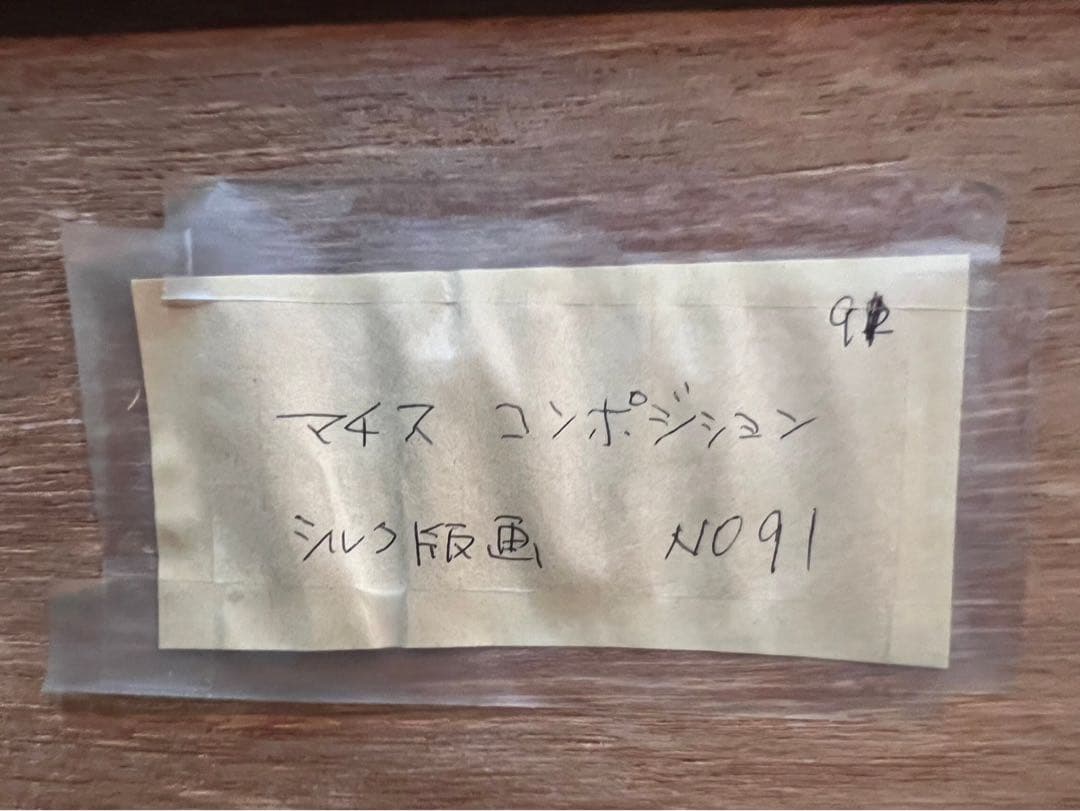 マチス コンポジション
シルク版画 NO91